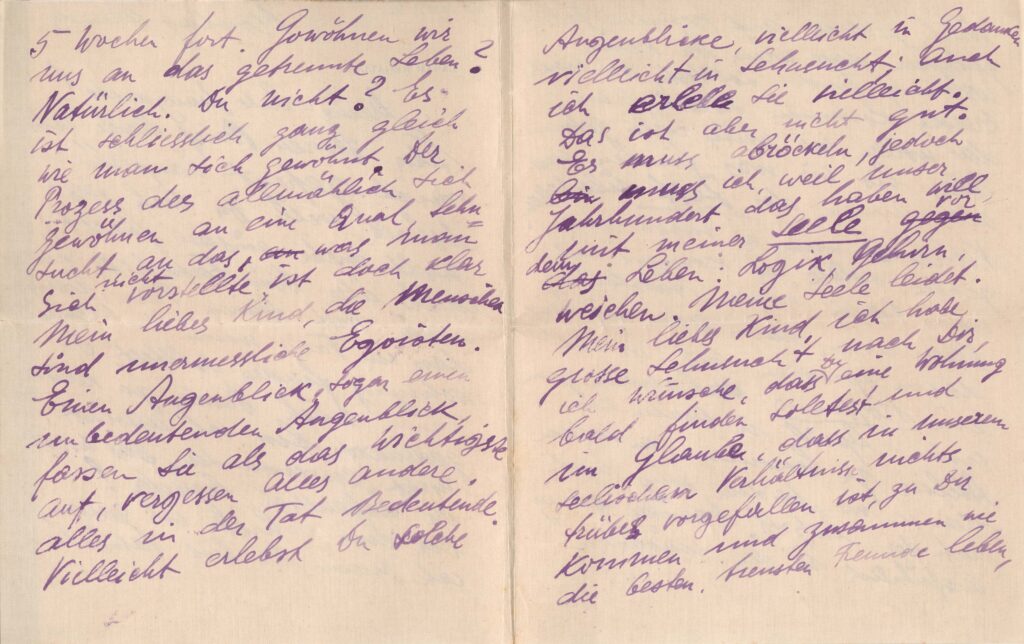 5 Wochen fort. Gewöhnen wir
uns an das getrennte Leben?
Natürlich. Du nicht? Es
ist schliesslich ganz gleich
wie man sich gewöhnt. Der
Prozess des allmählich sich
gewöhnen an eine Qual, Sehn=
sucht, an das, an was man
sich nicht vorstellte, ist doch klar
Mein liebes Kind, die Menschen
sind unermessliche Egoisten.
Einen Augenblick, sogar einen
unbedeutenden Augenblick,
fassen sie als das wichtigste
auf, vergessen alles andere,
alles in der Tat Bedeutende.
Vielleicht erlebst Du solche
Augenblicke, vielleicht in Gedanken
vielleicht in Sehnsucht. Auch
ich erlebe sie vielleicht.
Das ist aber nicht gut.
Es muss abröckeln, jedoch
bin muss ich, weil unser
Jahrhundert das haben will,
mit meiner Seele gegen vor
das dem Leben: Logik, Gehirn,
weichen. Meine Seele leidet.
Mein liebes Kind, ich habe
grosse Sehnsucht nach Dir,
ich wünsche, dass Du eine Wohnung
bald finden solltest und
im Glauben, dass in unserem
seelischen Verhältnisse nichts
trübes vorgefallen ist, zu Dir
kommen und zusammen wie
die besten, treusten Freunde leben,